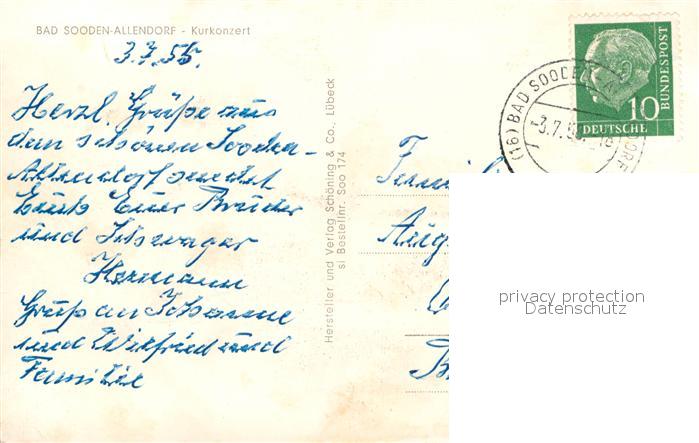 BAD SOODEN-ALLENDORF - Kurkonzert
3.7.55.
Herzl. Grüße aus
dem schönen Sooden-
Allendorf sendet
Euch Euer Bruder
und Schwager
Hermann
Gruß an Johanne
und Wilfried und
Familie
Hersteller und Verlag Schöning & Co., Lübeck
si Bestellnr. Soo 174
(16) BAD SOODEN
-3.7.55.
DORF
10
DEUTSCHE
BUNDESPOST
privacy protection
Datenschutz